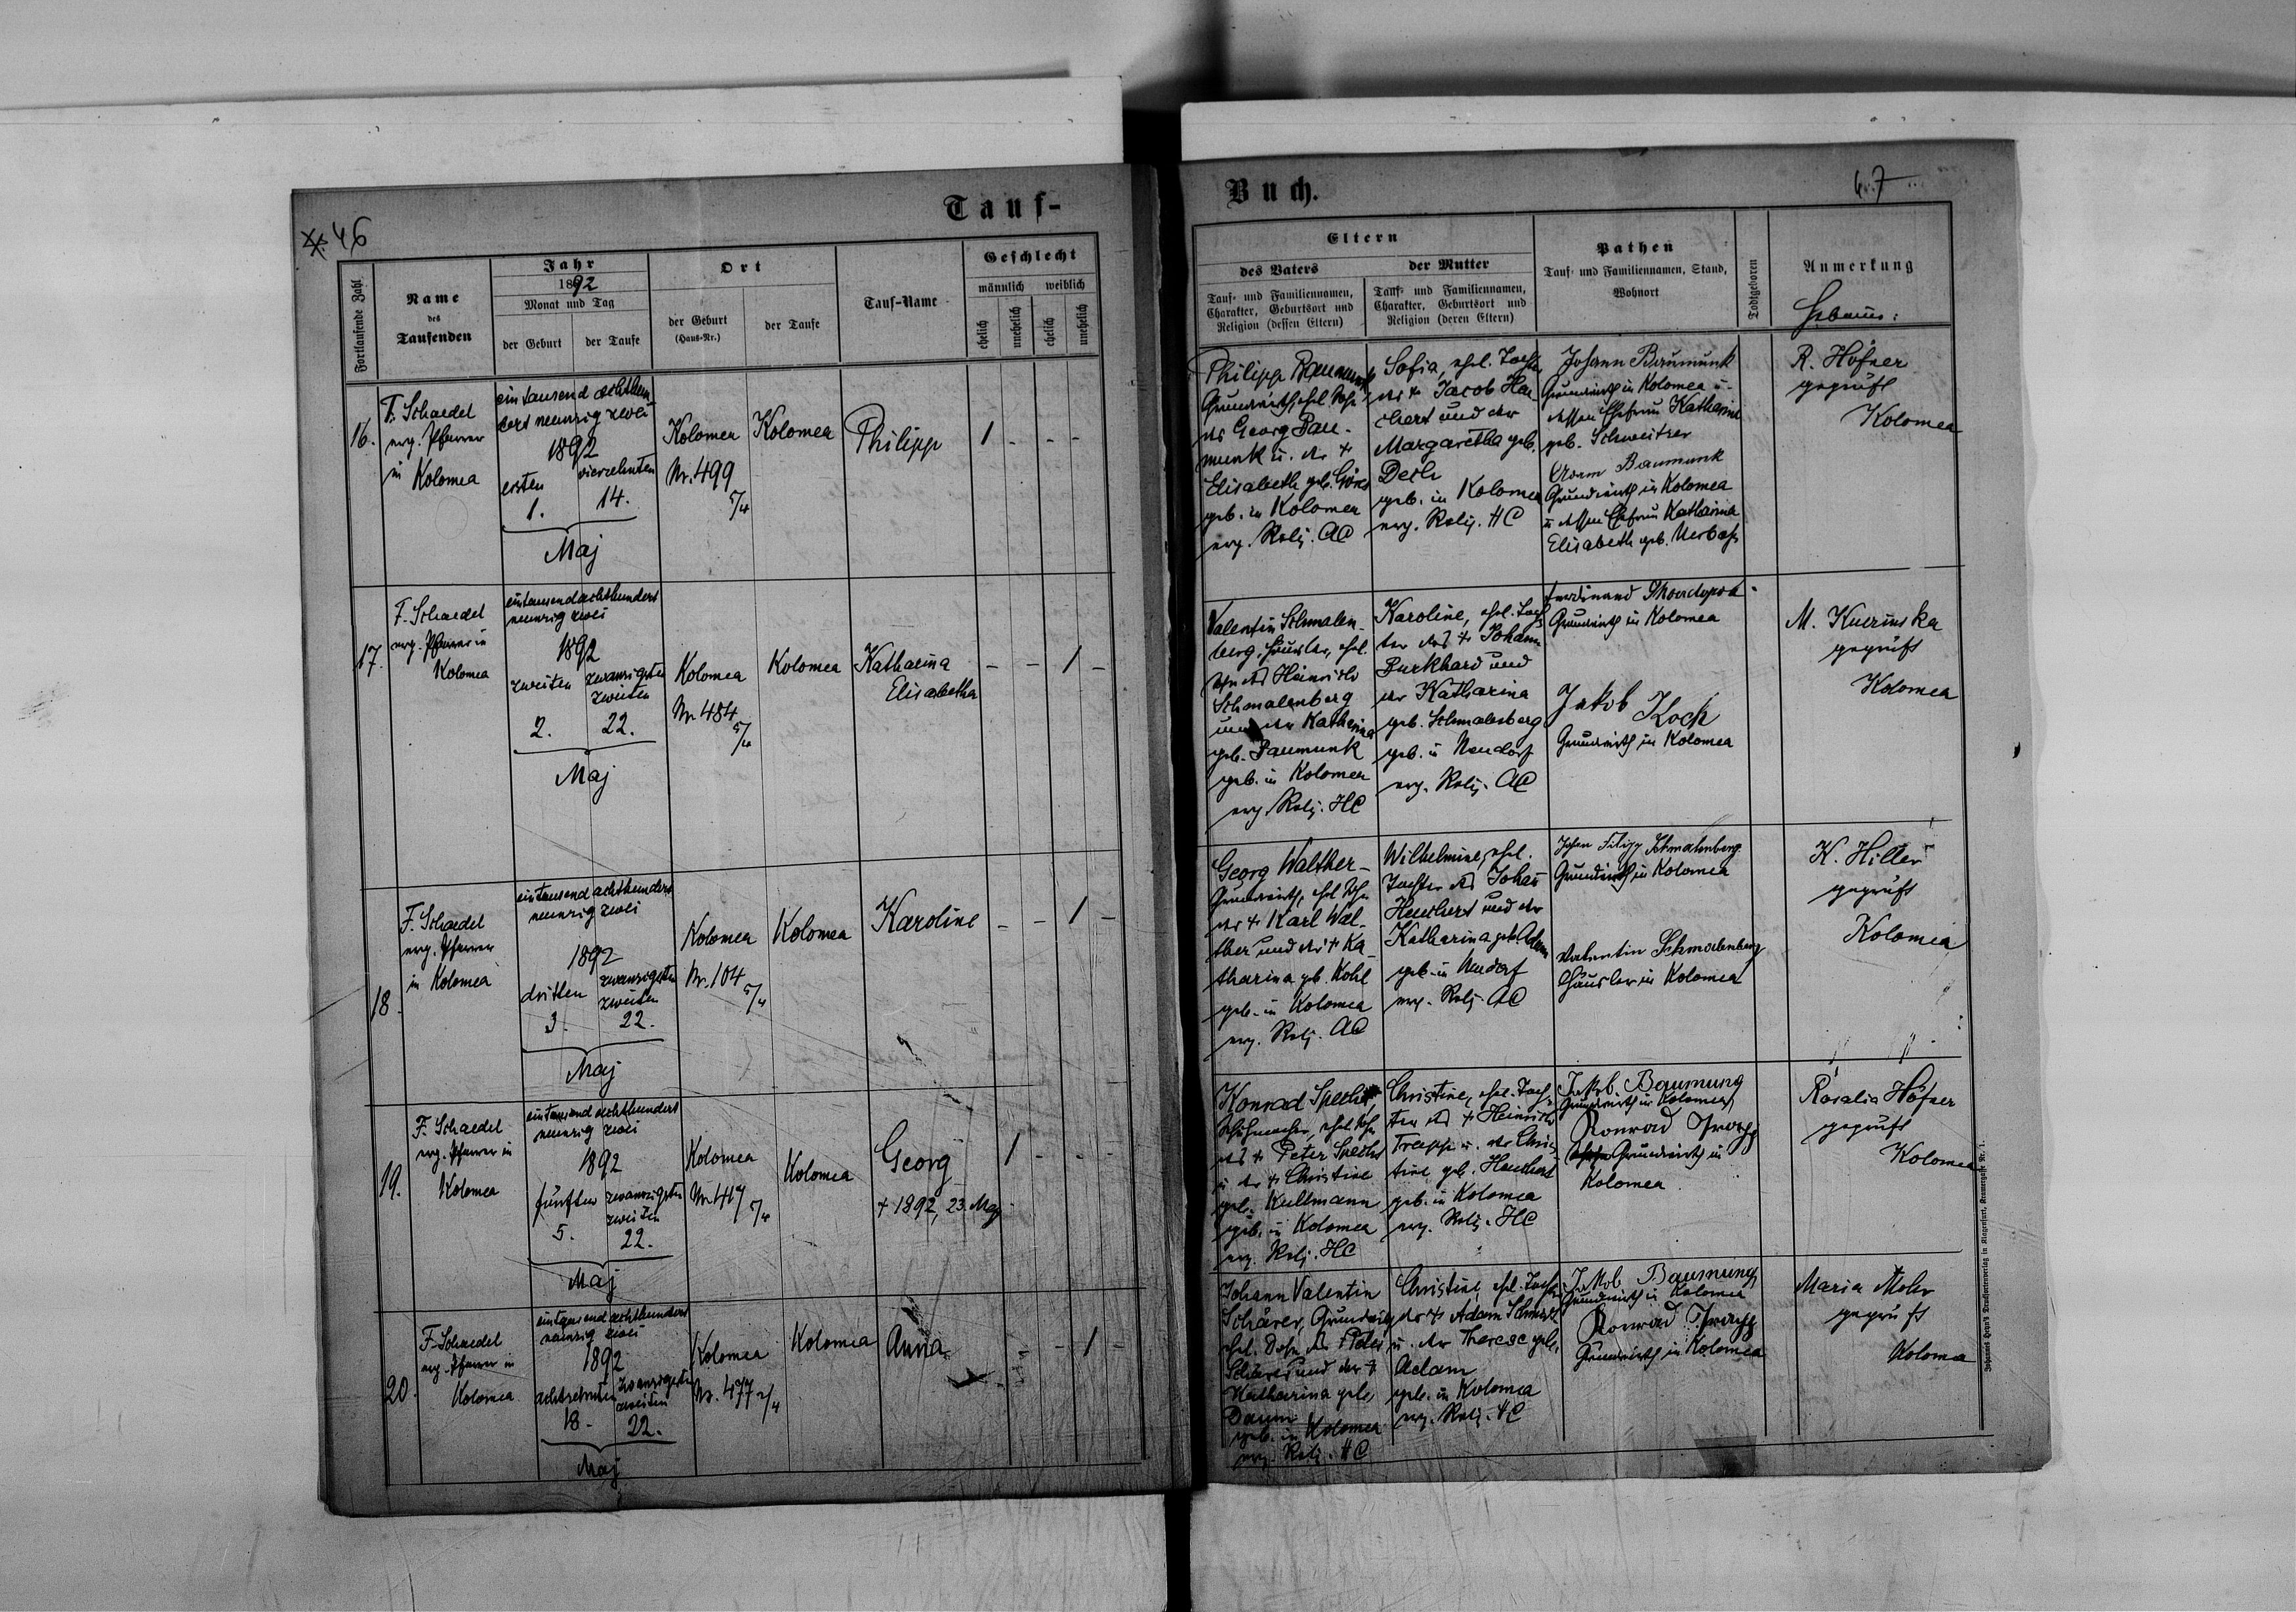 46
Tauf-
Fortlaufende Zahl
Name
des
Taufenden
Jahr
1892
Monat und Tag
der Geburt
der Taufe
Ort
der Geburt
(Haus-Nr.)
der Taufe
Tauf-Name
Geschlecht
männlich
weiblich
ehelich
unehelich
ehelich
unehelich
16.
F. Schaedel
evg. Pfarrer
in Kolomea
ein tausend achthun
dert neunzig zwei
1892
ersten
1.
vierzehnten
14.
Maj
Kolomea
Nr. 499
5/4
Kolomea
Philipp
1 - - -
17.
F. Schaedel
evg. Pfarrer in
Kolomea
eintausendachthundert
neunzig zwei
1892
zweiten
2.
zwanzigsten
zweiten
22.
Maj
Kolomea
Nr. 484
5/4
Kolomea
Katharina
Elisabetha
- - 1 -
18.
F. Schaedel
evg. Pfarrer
in Kolomea
ein tausend achthundert
neunzig zwei
1892
dritten
3.
zwanzigsten
zweiten
22.
Maj
Kolomea
Nr. 104
5/4
Kolomea
Karoline
- - 1 -
19.
F. Schaedel
evg. Pfarrer in
Kolomea
ein tausend achthundert
neunzig zwei
1892
fünften
5.
zwanzigsten
zweiten
22.
Maj
Kolomea
Nr. 417
5/4
Kolomea
Georg
+ 1892, 23. Maj
1 - - -
20.
F. Schaedel
evg. Pfarrer in
Kolomea
ein tausend achthundert
neunzig zwei
1892
achtzehnten
18.
zwanzigsten
zweiten
22.
Maj
Kolomea
Nr. 477
Kolomea
Anna
- - 1 -
Buch.
47
Eltern
des Vaters
Tauf- und Familiennamen,
Charakter, Geburtsort und
Religion (dessen Eltern)
der Mutter
Tauf- und Familiennamen,
Charakter, Geburtsort und
Religion (deren Eltern)
Pathen
Tauf- und Familiennamen, Stand,
Wohnort
Todtgeboren
Anmerkung
Hebamme:
Philipp Baumunk
Grundwirth, ehel. Sohn
des Georg Bau-
munk u. der +
Elisabeth geb. Göres
geb. in Kolomea
evg. Relig. AC
Sofia, ehel. Tochter
des + Jacob Heu
chert und der
Margaretha geb.
Desh
geb. in Kolomea
evg. Relig. HC
Johann Baumunk
Grundwirth in Kolomea u.
dessen Ehefrau Katharina
geb. Schweitzer
Adam Baumunk
Grundwirth in Kolomea
u dessen Ehefrau Katharina
Elisabeth geb.
R. Höfner
geprüft
Kolomea
Valentin Schmalen-
berg, Häusler, ehel.
Sohn des Heinrich
Schmalenberg
und der Katharina
geb. Baumunk
geb. in Kolomea
evg. Relig. HC
Karoline, ehel. Toch
ter des + Johann
Burkhard und
der Katharina
geb. Schmalenberg
geb. in Neudorf
evg. Relig. AC
Ferdinand
Grundwirth in Kolomea
Jakob Koch
Grundwirth in Kolomea
M. Kuezinska
geprüft
Kolomea
Georg Walther-
Grundwirth, ehel Sohn
des + Karl Wal-
ther und der + Ka
tharina geb. Kohl
geb. in Kolomea
evg. Relig. AC
Wilhelmine, ehel.
Tochter des Johan
Heuchert und der
Katharina geb. Adam
geb. in Neudorf
evg. Relig. AC
Johan Filipp Schmalenberg
Grundwirth in Kolomea
Valentin Schmalenberg
Häusler in Kolomea
K. Hiller
geprüft
Kolomea
Konrad Specht
Schuhmacher, ehel. Sohn
des + Peter Specht
u der + Christine
geb. Kullmann
geb. in Kolomea
evg. Relig. HC
Christine, ehel. Toch-
ter des + Heinrich
Trapp u. der Chris
tine geb. Heuchert
geb. in Kolomea
evg. Relig. HC
Jakob Baumung
Grundwirth in Kolomea
Konrad Trapp
Grundwirth in
Kolomea
Rosalia Höfner
geprüft
Kolomea
Johann Valentin
Schärer, Grundwirth
ehel. Sohn des Peter
Schärer und der +
Katharina geb.
Daum
geb. in Kolomea
evg. Relig. HC
Christine, ehel. Tochter
des + Adam Schmidt
u. der Therese geb.
Adam
geb. in Kolomea
evg. Relig. HC
Jakob Baumung
Grundwirth in Kolomea
Konrad Trapp
Grundwirth in Kolomea
Maria Mohr
geprüft
Kolomea